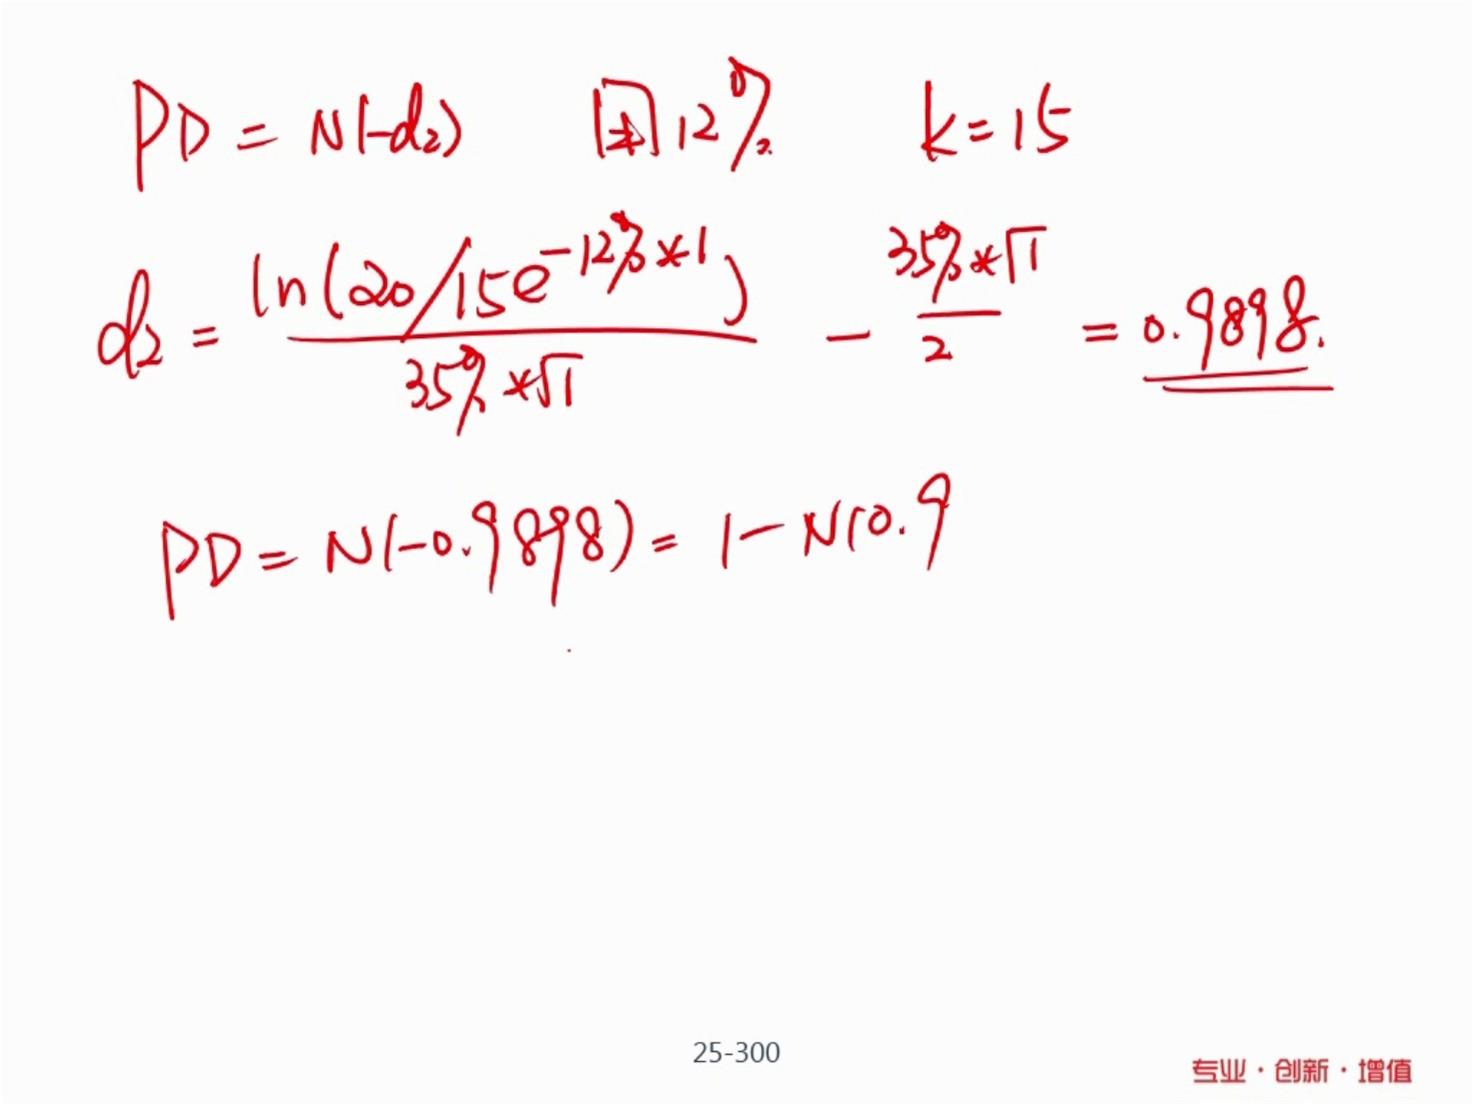 PD = N(-d₂) 用12% k=15
d₂ = ln(20/15e^{-12%*1}) / 35%*√1 - 35%*√1 / 2 = 0.9898.
PD = N(-0.9898) = 1-N(0.9
25-300
专业·创新·增值